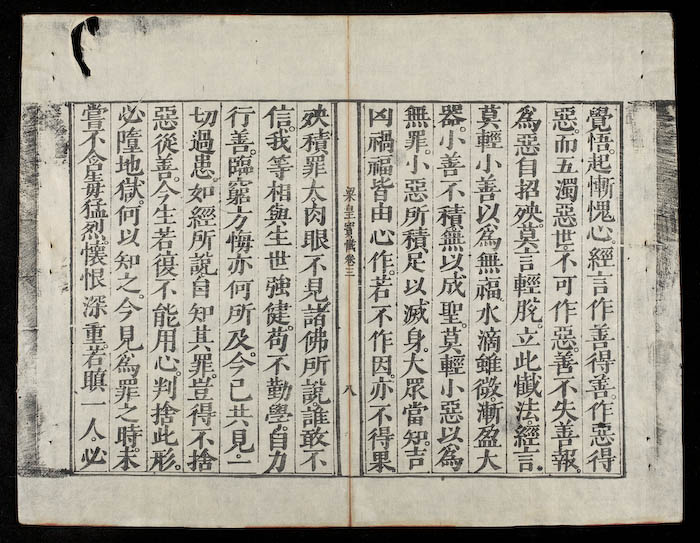 覺悟。起慚愧心。經言作善得善。作惡得
惡。而五濁惡世。不可作惡。善不失善報。
爲惡自招殃。莫言輕脫。立此懺法。經言。
莫輕小善以爲無福。水滴雖微。漸盈大
器。小善不積。無以成聖。莫輕小惡以爲
無罪。小惡所積。足以滅身。大眾當知。吉
凶禍福。皆由心作。若不作因。亦不得果。
梁皇寶懺卷三
八
殃積罪大。肉眼不見。諸佛所說。誰敢不
信。我等相與生世強健。苟不勤學。自力
行善。臨窮方悔。亦何所及。今已共見。一
切過患。如經所說。自知其罪。豈得不捨
惡從善。今生若復不能用心。判捨此形。
必墮地獄。何以知之。今見爲罪之時。未
嘗不含毒猛烈。懷恨深重。若瞋一人。必